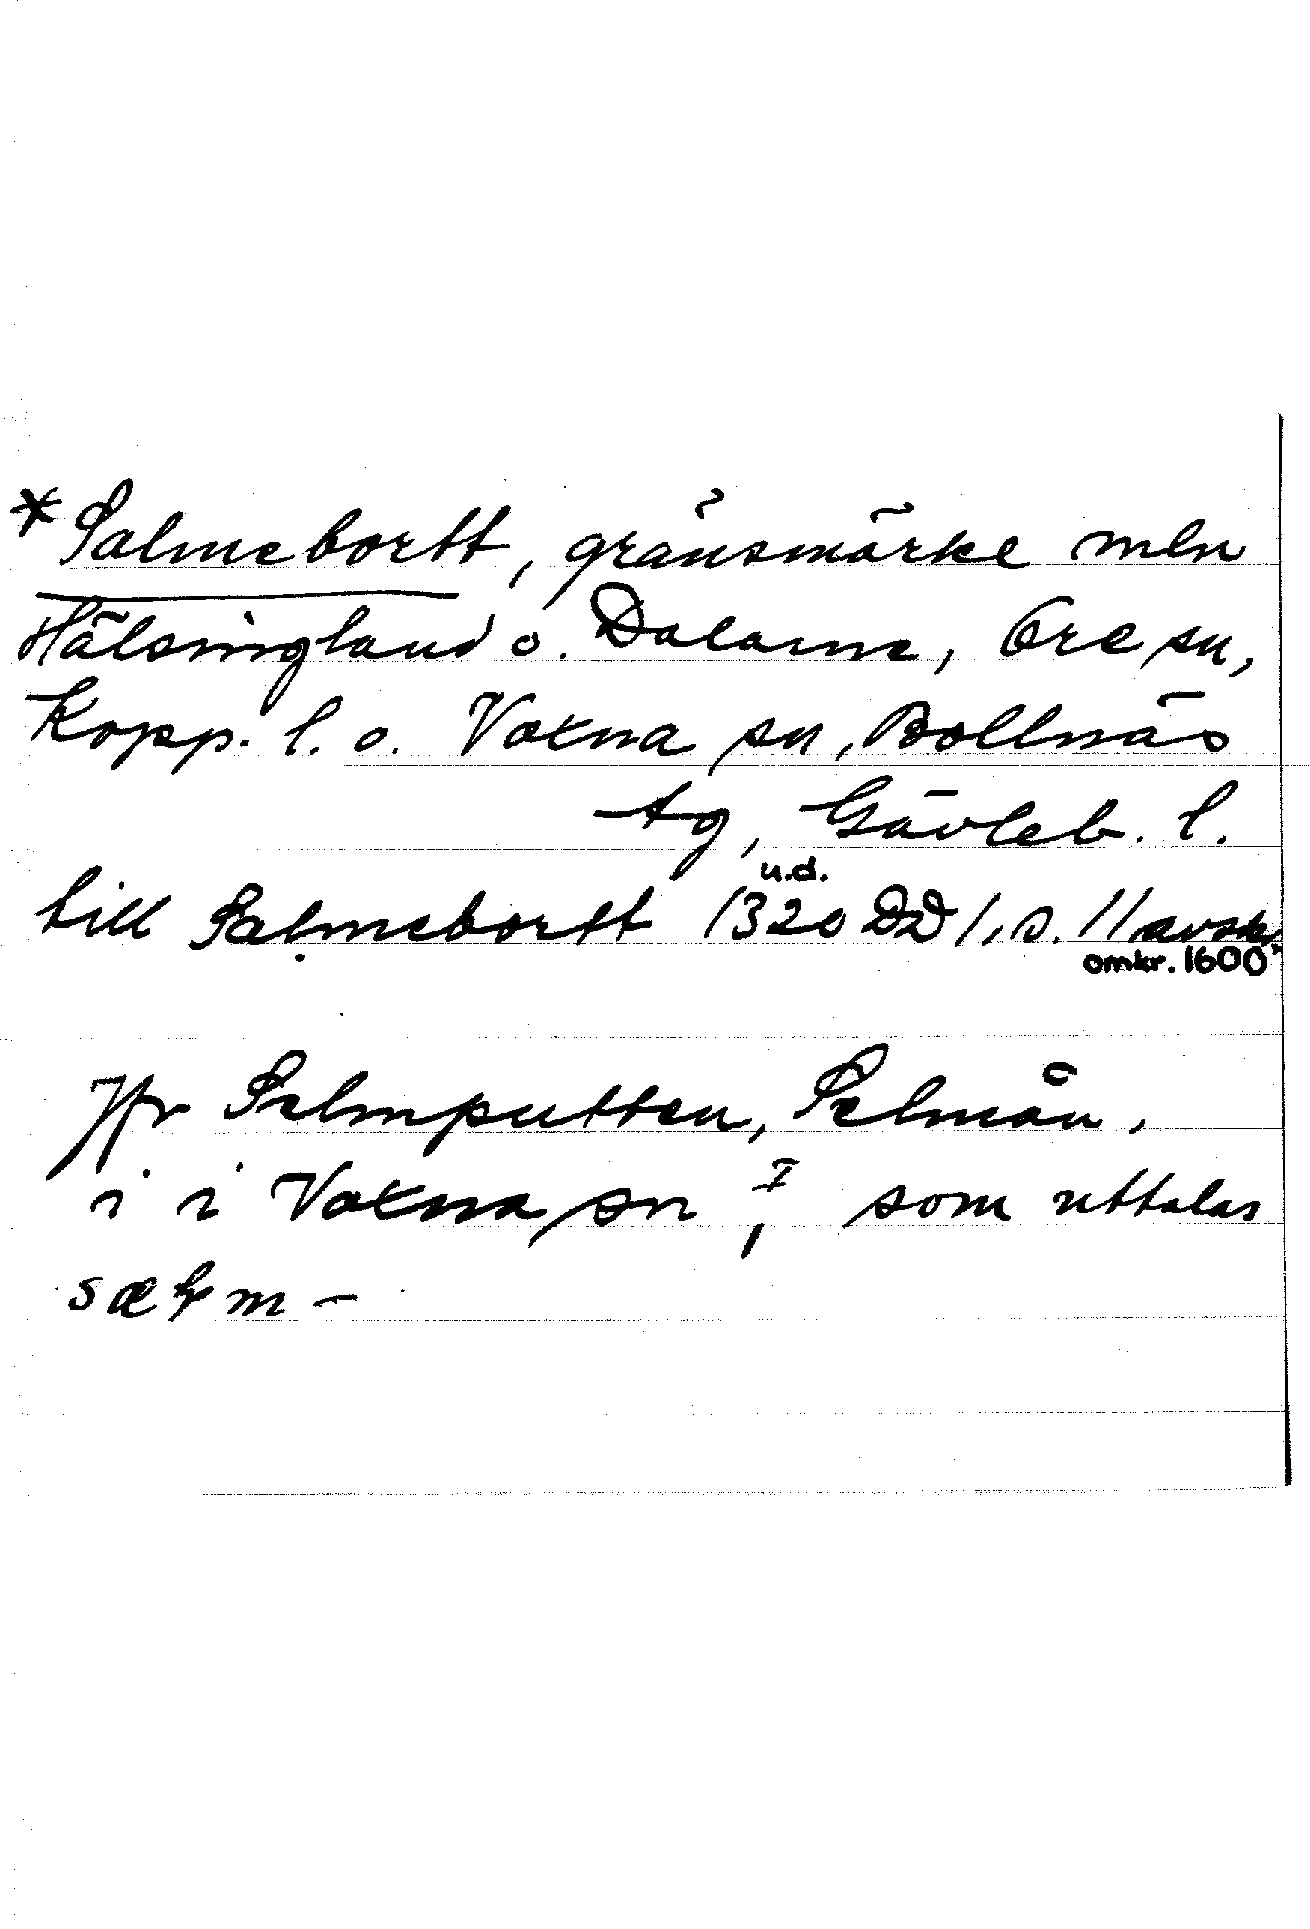 *Salmebortt, gränsmärke mln
Hälsingland o. Dalarne, Ore sn,
Kopp. l. o. Voxna sn, Bollnäs
tg, Gävleb. l.
till Salmebortt 1320 u.d. DD 1, s. 11 avskr.
omkr. 1600
Jfr Selmputten, Selmån,
i i Voxna sn I, som uttalas
sælm-